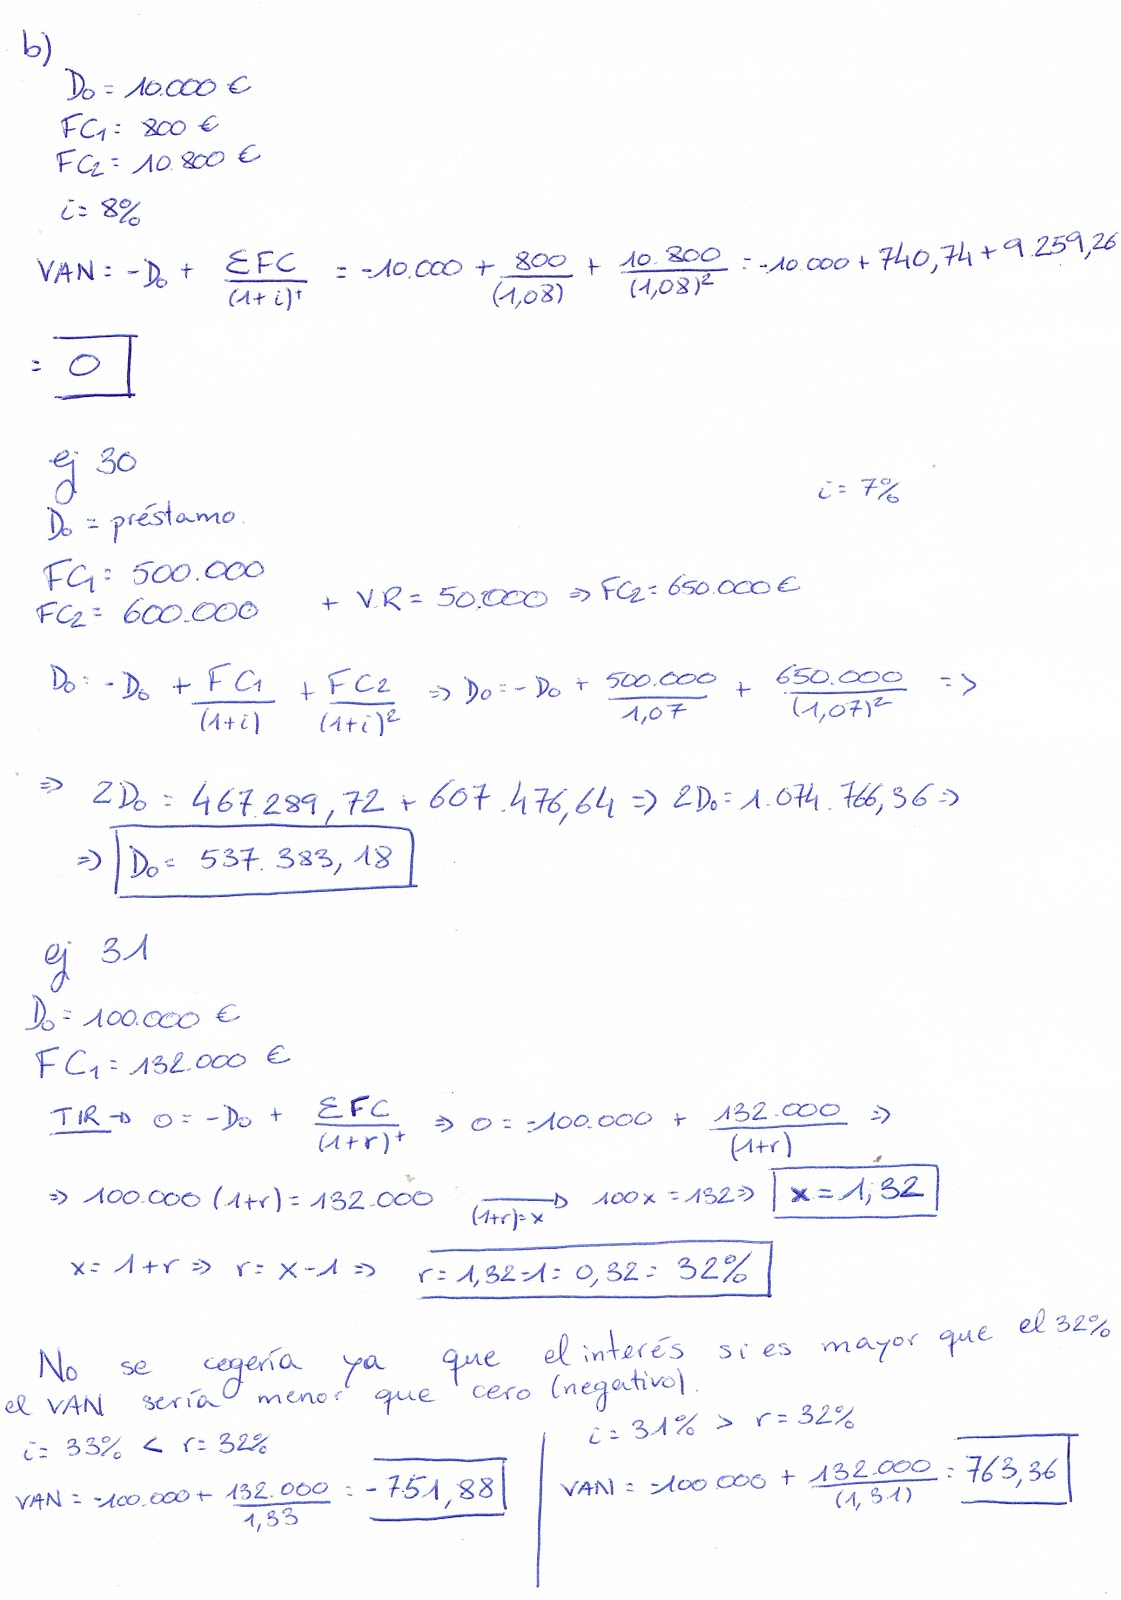 b)
D₀ = 10.000 €
FC₁ = 800 €
FC₂ = 10.800 €
i = 8%
VAN = -D₀ + ΣFC/(1+i)ᵗ = -10.000 + 800/(1,08) + 10.800/(1,08)² = -10.000 + 740,74 + 9.259,26
= 0
ej 30
i = 7%
D₀ = préstamo.
FC₁ = 500.000
FC₂ = 600.000 + V.R = 50.000 ⇒ FC₂ = 650.000 €
D₀ = -D₀ + FC₁/(1+i) + FC₂/(1+i)² ⇒ D₀ = -D₀ + 500.000/1,07 + 650.000/(1,07)² ⇒
⇒ 2D₀ = 467.289,72 + 607.476,64 ⇒ 2D₀ = 1.074.766,36 ⇒
⇒ D₀ = 537.383,18
ej 31
D₀ = 100.000 €
FC₁ = 132.000 €
TIR → 0 = -D₀ + ΣFC/(1+r)ᵗ ⇒ 0 = -100.000 + 132.000/(1+r) ⇒
⇒ 100.000 (1+r) = 132.000 →(1+r)=x 100x = 132 ⇒ x = 1,32
x = 1+r ⇒ r = x-1 ⇒ r = 1,32-1 = 0,32 = 32%
No se cegería ya que el interés si es mayor que el 32%
el VAN sería menor que cero (negativo).
i = 33% < r = 32%
VAN = -100.000 + 132.000/1,33 = -751,88
i = 31% > r = 32%
VAN = -100.000 + 132.000/(1,31) = 763,36